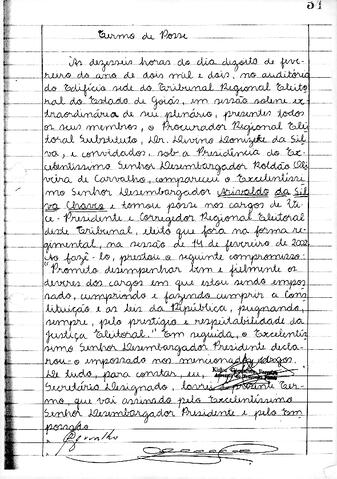 51
Termo de Posse
Às dezesseis horas do dia dezoito de feve-
reiro do ano de dois mil e dois, no auditório
do Edifício sede do Tribunal Regional Eleito-
ral do Estado de Goiás, em sessão solene ex-
traordinária de seu plenário, presentes todos
os seus membros, o Procurador Regional Elei-
toral Substituto, Dr. Divino Donizette da Sil-
va, e convidados, sob a Presidência do Ex-
celentíssimo Senhor Desembargador Roldão Oli-
veira de Carvalho, compareceu o Excelentíssi-
mo Senhor Desembargador Arivaldo da Sil-
va Chaves e tomou posse nos cargos de Vi-
ce-Presidente e Corregedor Regional Eleitoral
deste Tribunal, eleito que fora na forma re-
gimental, na sessão de 14 de fevereiro de 2002.
Ao fazê-lo, prestou o seguinte compromisso:
"Prometo desempenhar bem e fielmente os
deveres dos cargos em que estou sendo empos-
sado, cumprindo e fazendo cumprir a cons-
tituição e as leis da República, pugnando,
sempre, pelo prestígio e respeitabilidade da
Justiça Eleitoral." Em seguida, o Excelentís-
simo Senhor Desembargador Presidente decla-
rou-o empossado nos mencionados cargos.
De tudo, para constar, eu,
Secretário Designado, lavrei o presente Ter-
mo, que vai assinado pelo Excelentíssimo
Senhor Desembargador Presidente e pelo Em-
possado